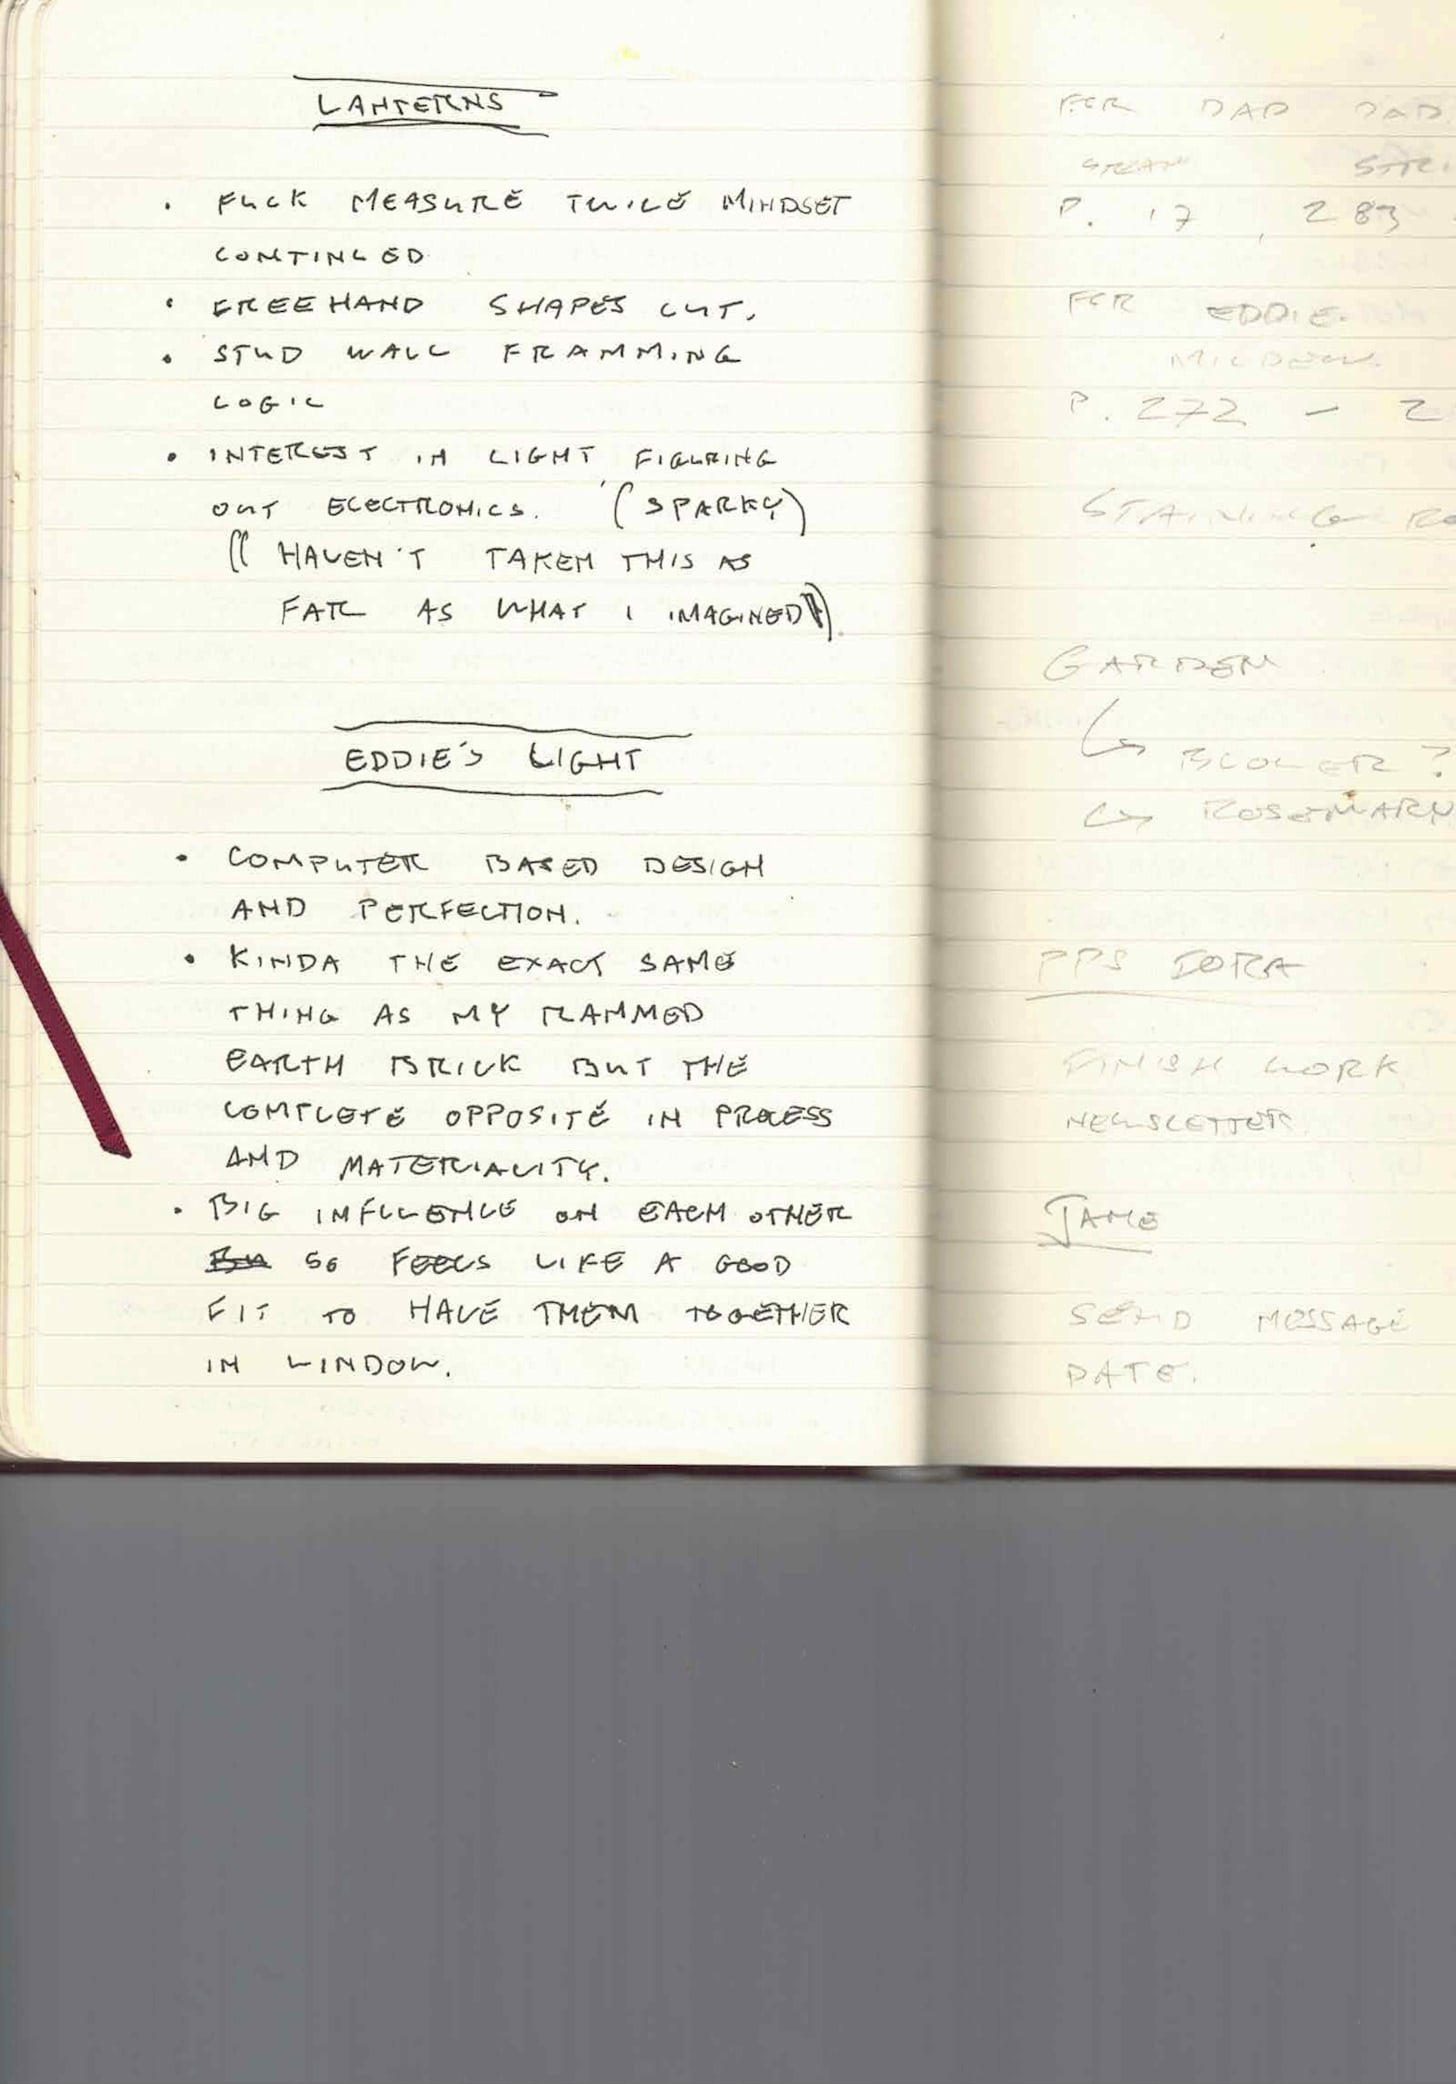 LANTERNS
• FUCK MEASURE TWICE MINDSET
CONTINUED
• FREEHAND SHAPES CUT.
• STUD WALL FRAMMING
LOGIC
• INTEREST IN LIGHT FIGURING
OUT ELECTRONICS. (SPARKY)
(( HAVEN'T TAKEN THIS AS
FAR AS WHAT I IMAGINED)).
EDDIE'S LIGHT
• COMPUTER BASED DESIGN
AND PERFECTION.
• KINDA THE EXACT SAME
THING AS MY RAMMED
EARTH BRICK BUT THE
COMPLETE OPPOSITE IN PROCESS
AND MATERIALITY.
• BIG INFLUENCE ON EACH OTHER
SO FEELS LIKE A GOOD
FIT TO HAVE THEM TOGETHER
IN WINDOW.
FOR DAD DAD
P. 17, 283
FOR EDDIE.
P. 272 - 2
STAINING
GARDEN
↳ BLOWER ?
↳ ROSEMARY
PPS DORA
FINISH WORK
NEWSLETTER.
JAME
SEND MESSAGE
DATE.